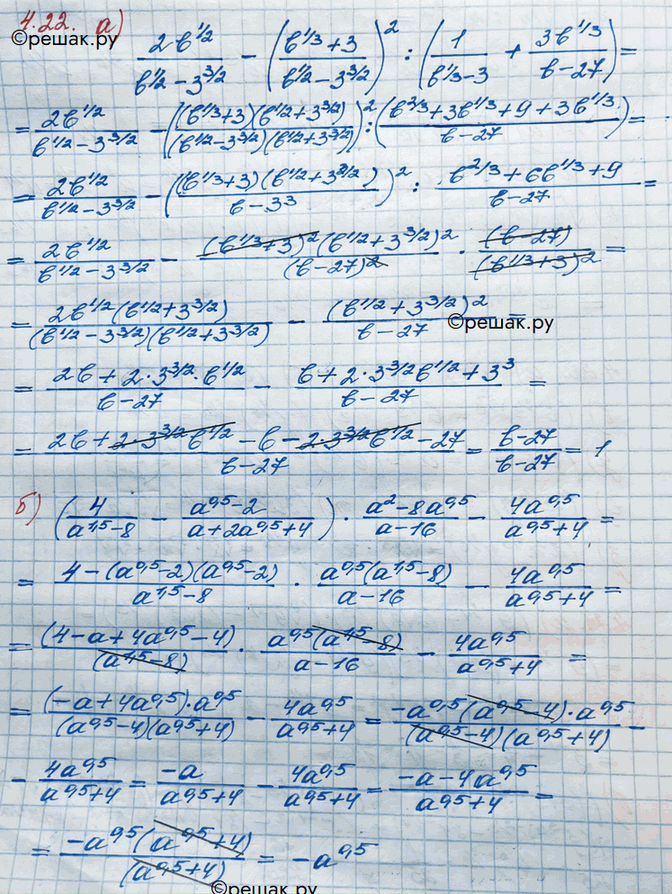 4.22. а)
©решак.ру
2b^(1/2)/(b^(1/2) − 3^(3/2)) − ((b^(1/3) + 3)/(b^(1/2) − 3^(3/2)))^2 : (1/(b^(1/3) − 3) + 3b^(1/3)/(b − 27)) =
= 2b^(1/2)/(b^(1/2) − 3^(3/2)) − ((b^(1/3) + 3)(b^(1/2) + 3^(3/2))/((b^(1/2) − 3^(3/2))(b^(1/2) + 3^(3/2))))^2 : ((b^(2/3) + 3b^(1/3) + 9 + 3b^(1/3))/(b − 27)) =
= 2b^(1/2)/(b^(1/2) − 3^(3/2)) − ((b^(1/3) + 3)(b^(1/2) + 3^(3/2))/(b − 3^3))^2 : (b^(2/3) + 6b^(1/3) + 9)/(b − 27) =
= 2b^(1/2)/(b^(1/2) − 3^(3/2)) − (b^(1/3) + 3)^2 (b^(1/2) + 3^(3/2))^2/(b − 27)^2 · (b − 27)/(b^(1/3) + 3)^2 =
= 2b^(1/2)(b^(1/2) + 3^(3/2))/((b^(1/2) − 3^(3/2))(b^(1/2) + 3^(3/2))) − (b^(1/2) + 3^(3/2))^2/(b − 27) =
©решак.ру
= (2b + 2·3^(3/2)·b^(1/2))/(b − 27) − (b + 2·3^(3/2)b^(1/2) + 3^3)/(b − 27) =
= (2b + 2·3^(3/2)b^(1/2) − b − 2·3^(3/2)b^(1/2) − 27)/(b − 27) = (b − 27)/(b − 27) = 1
б) (4/(a^(1,5) − 8) − (a^(0,5) − 2)/(a + 2a^(0,5) + 4)) · (a^2 − 8a^(0,5))/(a − 16) − 4a^(0,5)/(a^(0,5) + 4) =
= (4 − (a^(0,5) − 2)(a^(0,5) − 2))/(a^(1,5) − 8) · a^(0,5)(a^(1,5) − 8)/(a − 16) − 4a^(0,5)/(a^(0,5) + 4) =
= (4 − a + 4a^(0,5) − 4)/(a^(1,5) − 8) · a^(0,5)(a^(1,5) − 8)/(a − 16) − 4a^(0,5)/(a^(0,5) + 4) =
= (−a + 4a^(0,5))·a^(0,5)/((a^(0,5) − 4)(a^(0,5) + 4)) − 4a^(0,5)/(a^(0,5) + 4) = −a^(0,5)(a^(0,5) − 4)·a^(0,5)/((a^(0,5) − 4)(a^(0,5) + 4)) −
− 4a^(0,5)/(a^(0,5) + 4) = −a/(a^(0,5) + 4) − 4a^(0,5)/(a^(0,5) + 4) = (−a − 4a^(0,5))/(a^(0,5) + 4) =
= −a^(0,5)(a^(0,5) + 4)/(a^(0,5) + 4) = −a^(0,5)
©решак.ру